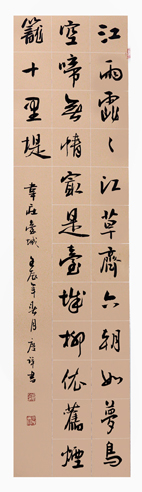 江雨霏〻江草齊六朝如夢鳥
空啼無情寂是臺城柳依舊煙
籠十里堤
韋莊臺城 壬辰年春月 唐 書